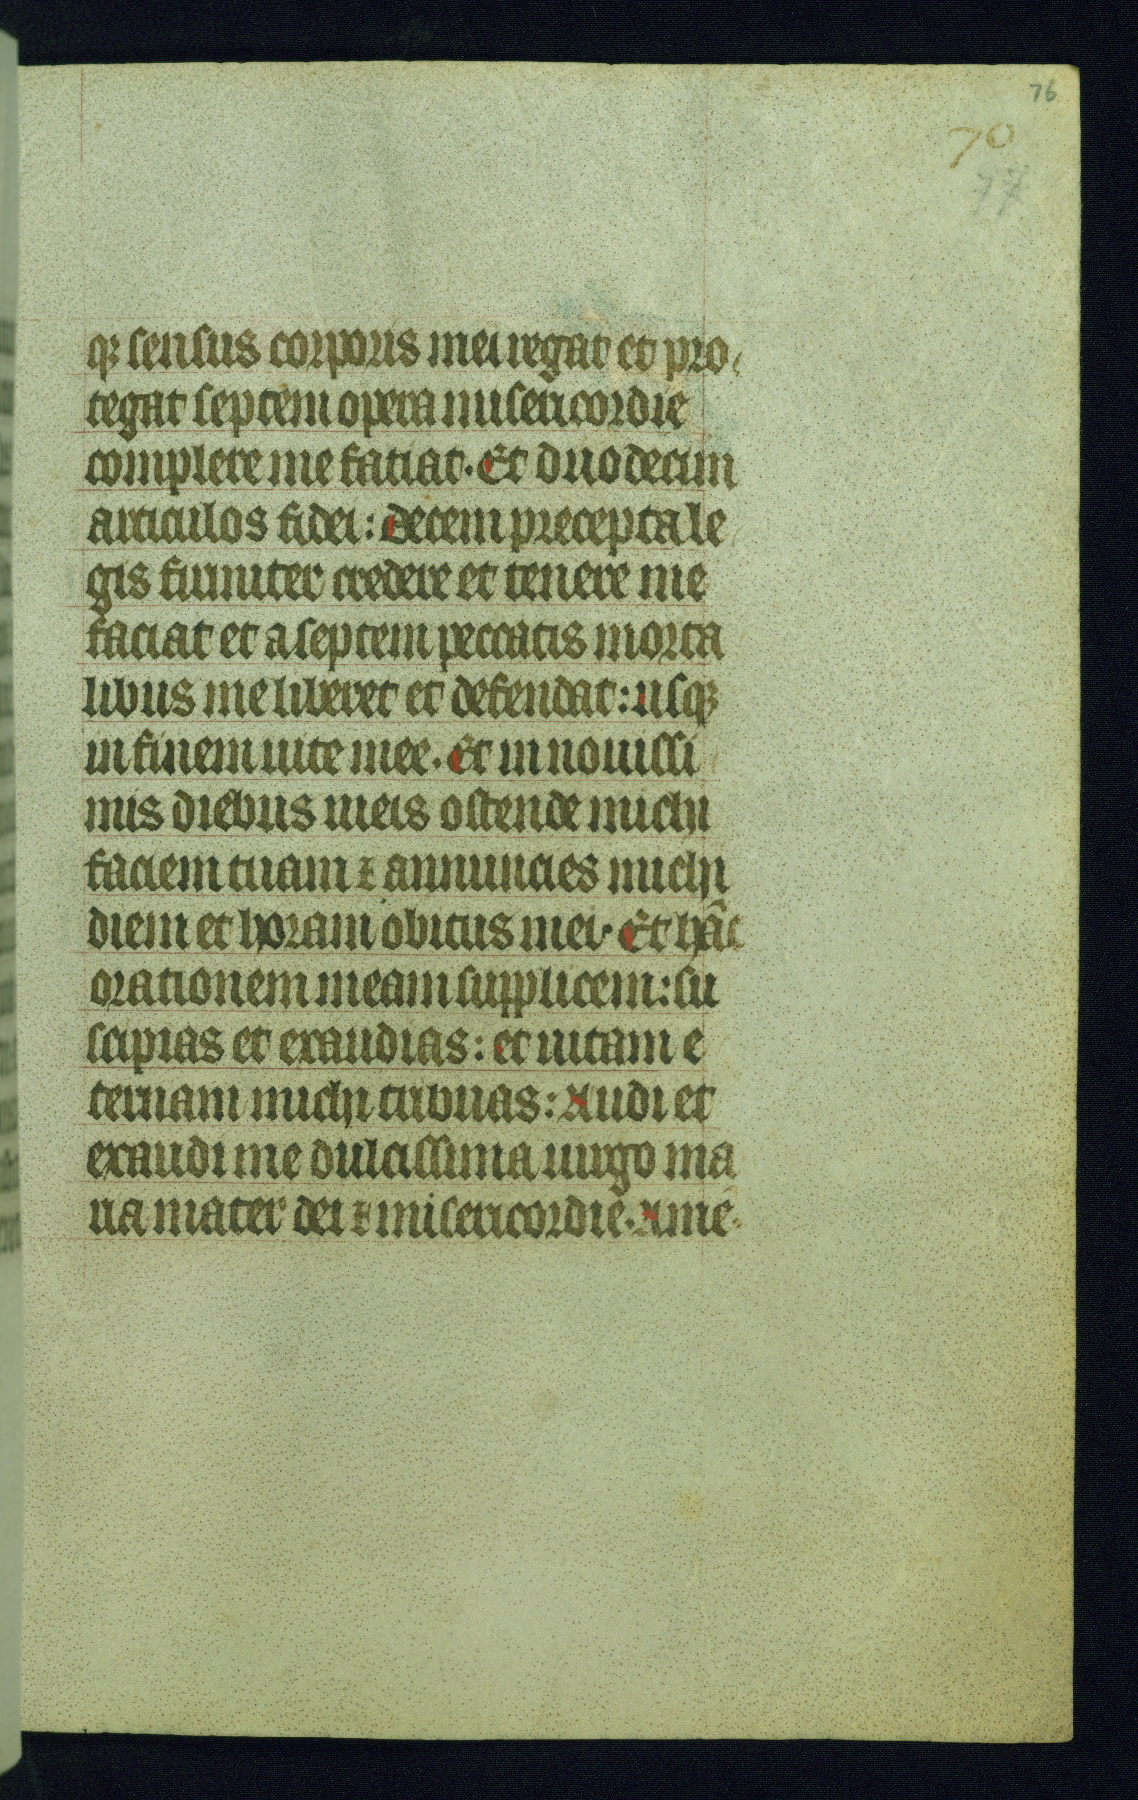 76
70
77
qꝫ sensus corporis mei regat et pro/
tegat septem opera misericordie
complere me fatiat. Et duodecim
articulos fidei: decem precepta le
gis firmiter credere et tenere me
faciat et a septem peccatis morta
libus me liberet et defendat: usqꝫ
in finem uite mee. Et in nouissi
mis diebus meis ostende michi
faciem tuam ⁊ annuncies michi
diem et horam obitus mei. Et hāc
orationem meam supplicem: su
scipias et exaudias: et uitam e
ternam michi tribuas: Audi et
exaudi me dulcissima uirgo ma
ria mater dei ⁊ misericordie. Ame.